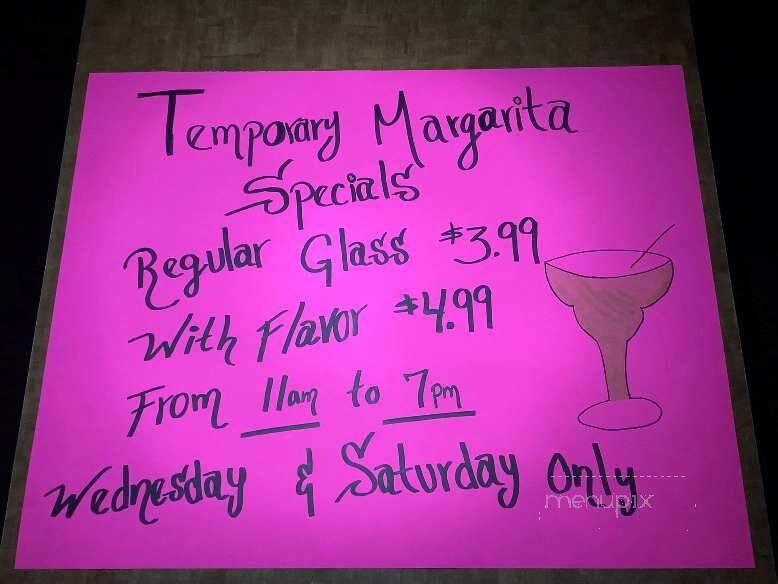 Temporary Margarita
Specials
Regular Glass $3.99
With Flavor $4.99
From 11am to 7pm
Wednesday & Saturday Only
menupix